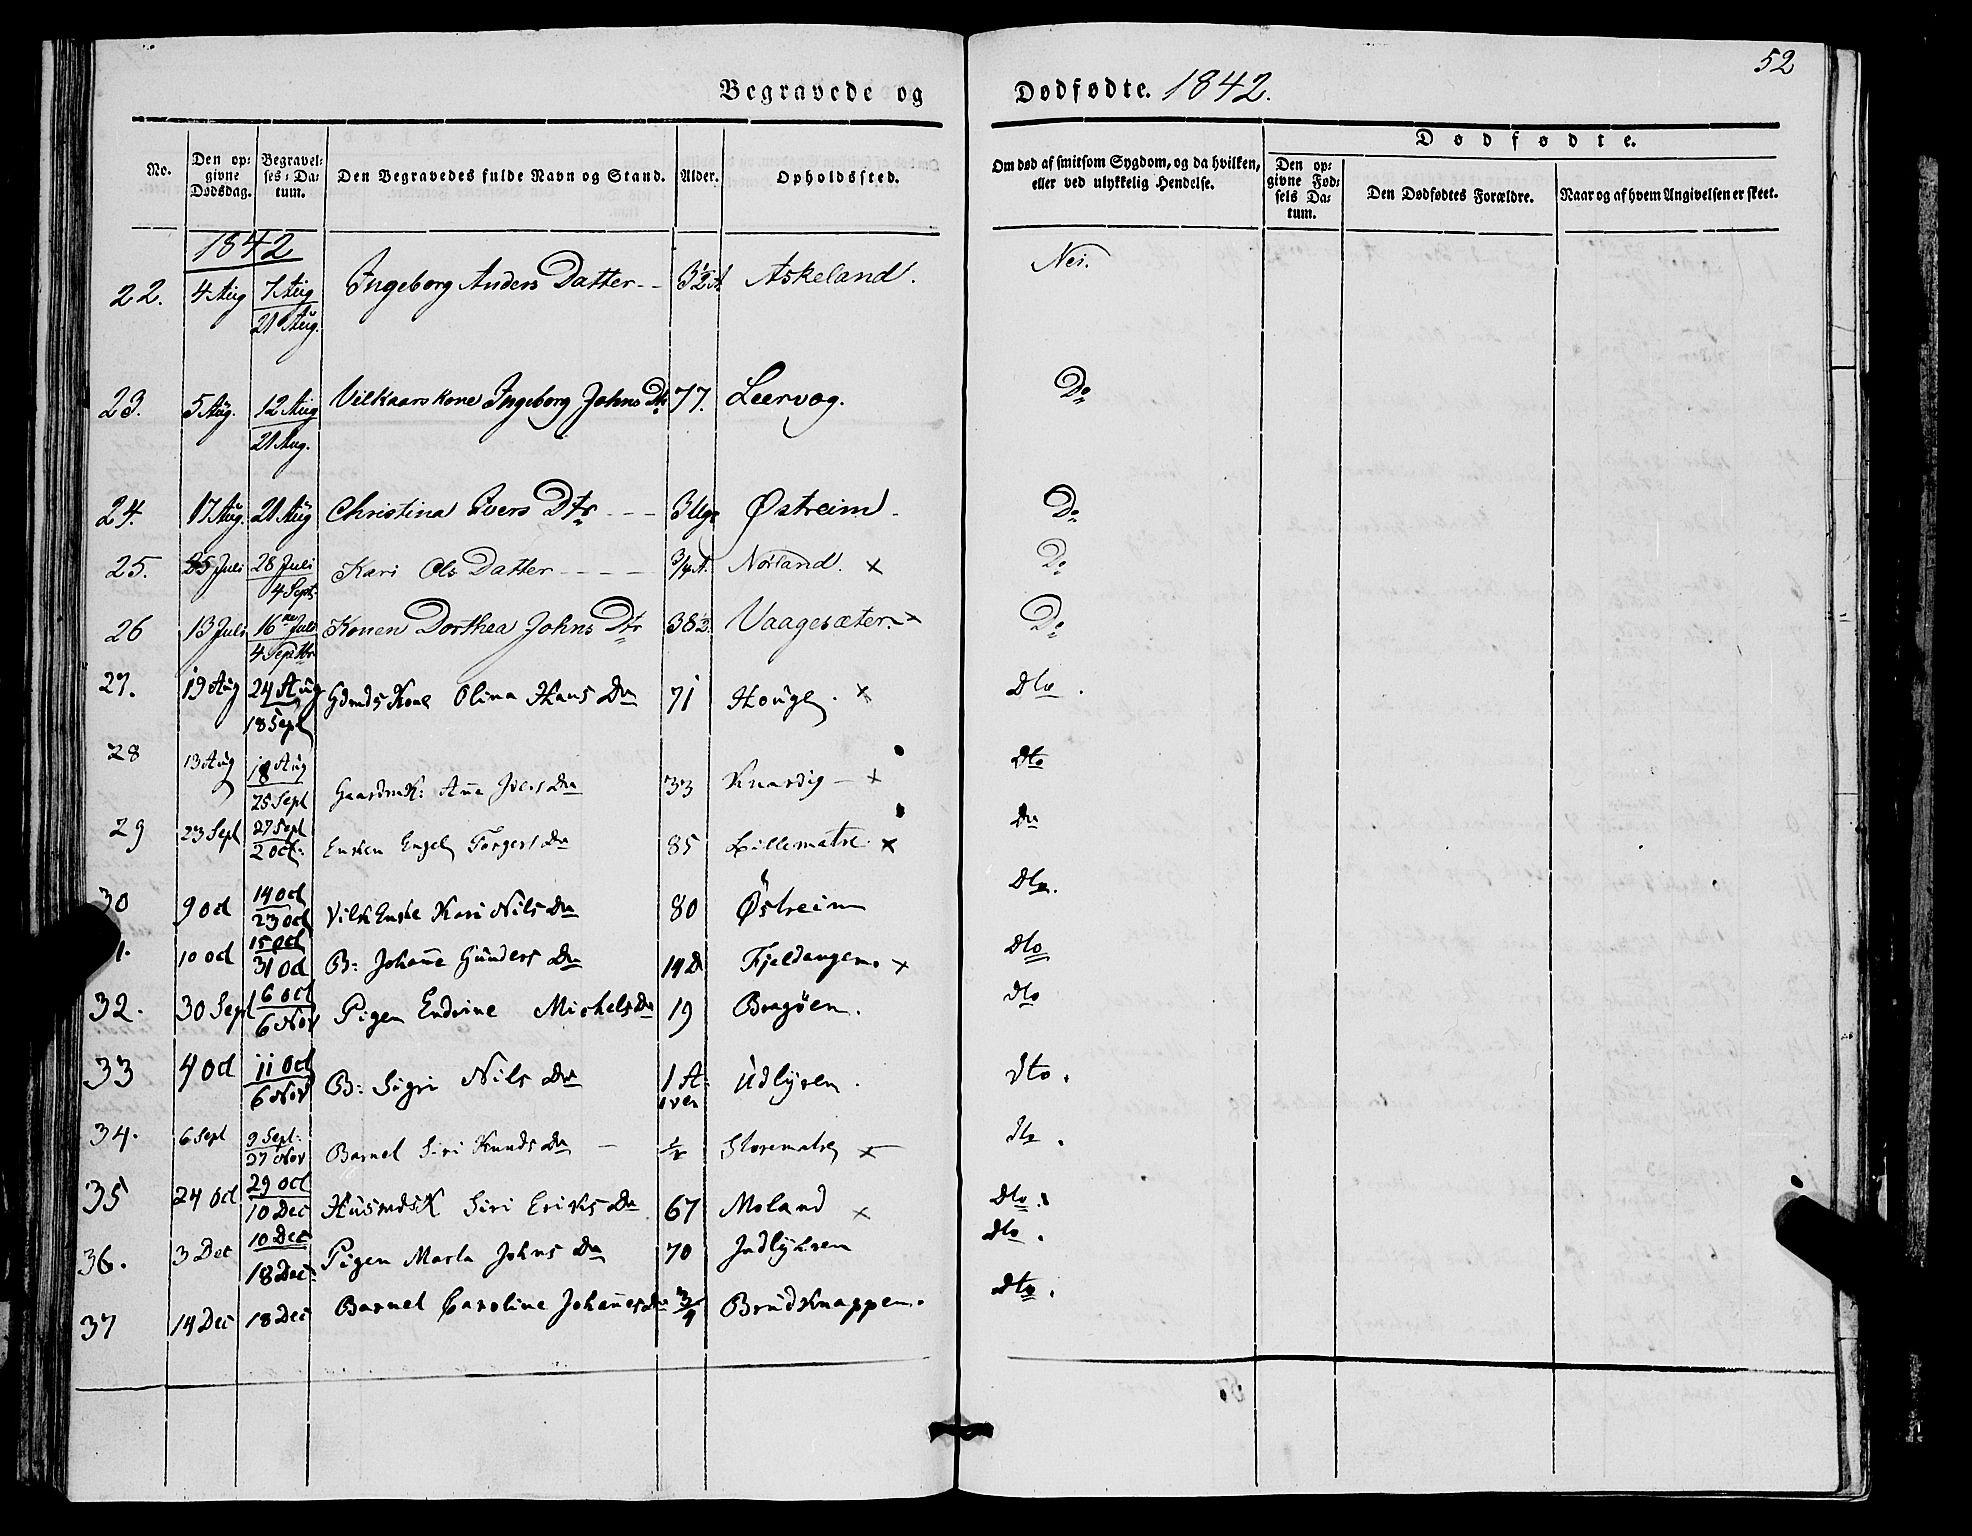 52
Begravede og Dødfødte. 1842.
No. | Den opgivne Dødsdag. | Begravelses-Datum. | Den Begravedes fulde Navn og Stand. | Alder. | Opholdssted. | Om død af smitsom Sygdom, og da hvilken, eller ved ulykkelig Hendelse. | Dødfødte. | Den opgivne Fødsels Datum. | Den Dødfødtes Forældre. | Naar og af hvem Angivelsen er skeet.
1842
22. | 4 Aug | 7 Aug 21 Aug. | Ingeborg Anders Datter | 3½ A | Askeland. | Nei.
23. | 5 Aug. | 12 Aug 21 Aug. | Vilkaarskone Ingeborg Johns Dtr | 77. | Leervog. | Do
24. | 17 Aug. | 21 Aug | Christina Ivers Dtr | 3 Uge | Østreim | Do
25. | 25 Juli | 28 Juli 4 Sept. | Kari Ols Datter | 3/4 A. | Nosland. x | Do
26 | 13 Juli | 16 Juli 4 Septbr | Konen Dorthea Johns Dtr | 38½ | Vaagesæter. x | Do
27. | 19 Aug | 24 Aug 18 Sept | Gdmds Kone Olina Hans Dr | 71 | Houge. x | Dto.
28 | 13 Aug | 18 Aug 25 Sept | Gaardmk: Ane Ivers Dr | 33 | Knardig x | Dto
29 | 23 Sept | 27 Sept 2 Oct. | Enken Engel Torgers Dr | 85 | Lillematre x | Do
30 | 9 Oct | 14 Oct 23 Oct | Vilk Enke Kari Nils Dr | 80 | Østreim | Dto.
1. | 10 Oct | 15 Oct 31 Oct | B: Johane Gunders Dr | 14 D | Fjeldangen. x | Dto
32. | 30 Sept | 6 Oct 6 Nov | Pigen Endrine Michels Dr | 19 | Bragöen. | Dto
33 | 4 Oct | 11 Oct 6 Nov | B: Sigri Nils Dr | 1 A. | Udlyren. | Dto.
34. | 6 Sept | 9 Sept. 27 Nov | Barnet Siri Knuds Dr | ½ | Storematre x | Dto.
35 | 24 Oct | 29 Oct 10 Dec | HusmdsK Siri Eriks Dr | 67 | Moland x | Dto.
36. | 3 Dec | 10 Dec 18 Dec. | Pigen Marta Johns Dr | 70 | Indlyhren | Dto.
37 | 14 Dec | 18 Dec | Barnet Caroline Johanes Dr | 3/4 | Brudknappen. | Dto.